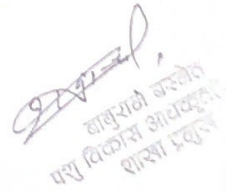 बाबुराम बस्नेत
पशु विकास अधिकृत
शाखा प्रमुख